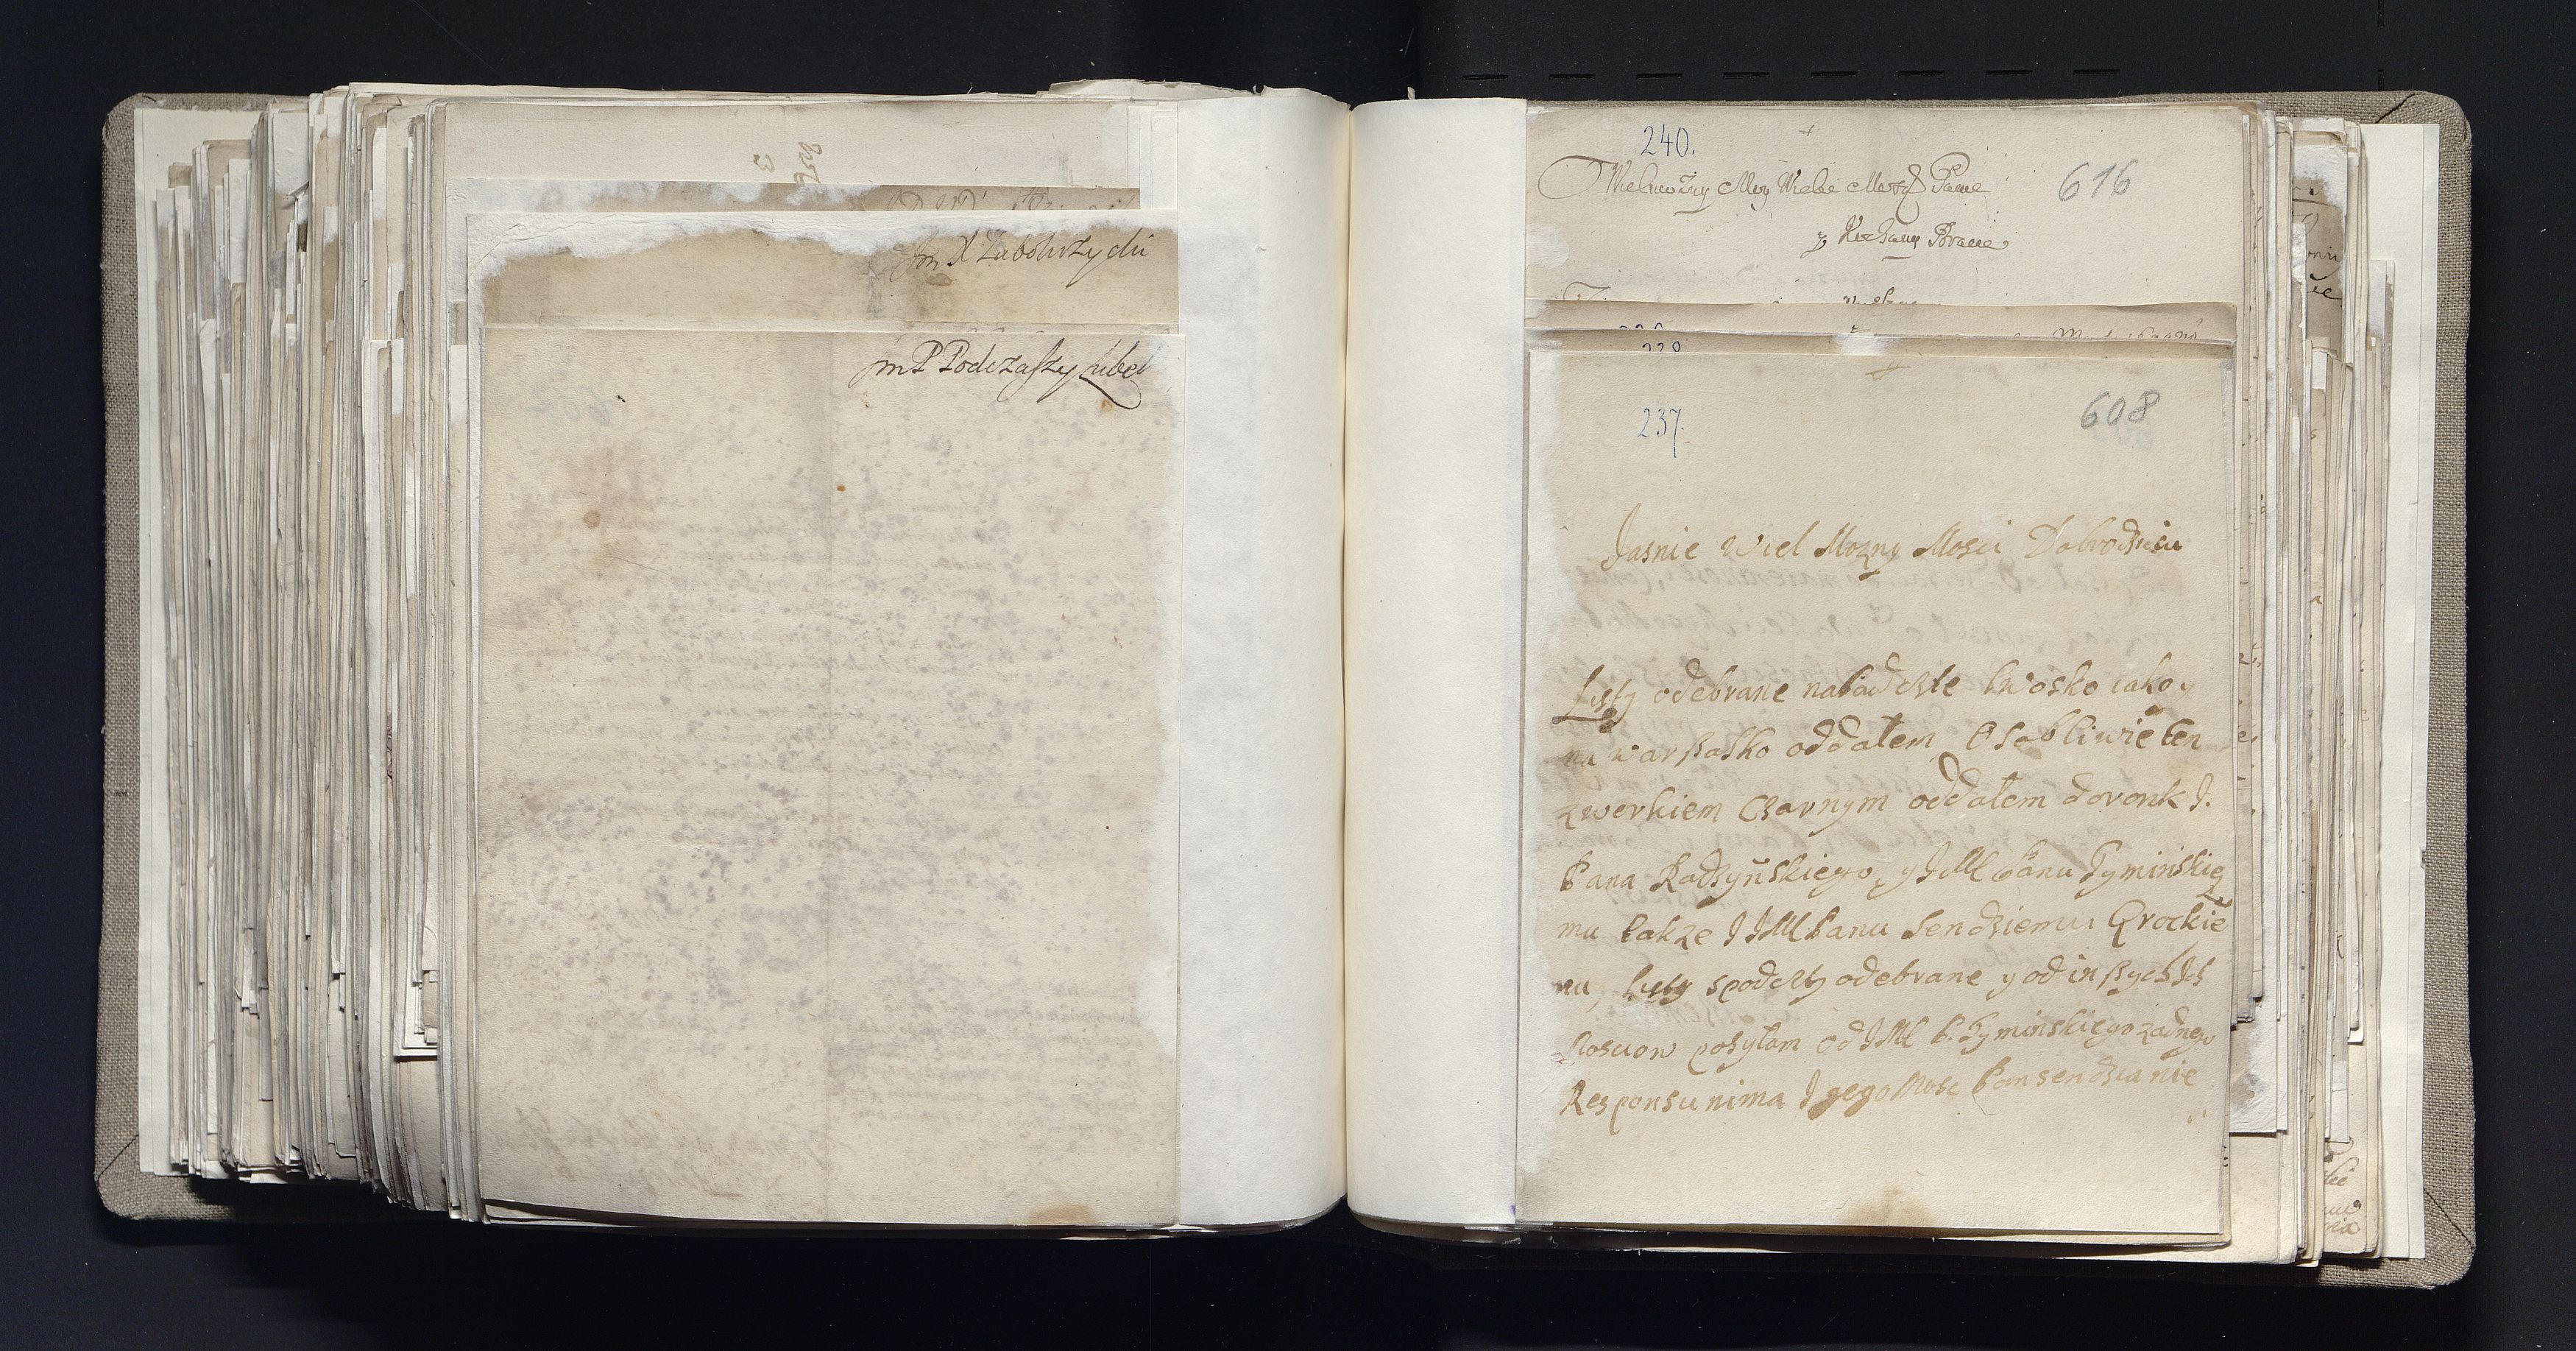 Jm P Podczaszy Lubel
240.
616
Wielmozny Moy Wielce Mosci Panie
y Kochany Bracie
237.
608
Jasnie Wiel Mozny Mosci Dobrodzieiu
Listy odebrane iako y
na warszasko oddałem, Osobliwie ten
zwerkiem Czarnym oddałem doronk J.
Pana Radzyńskiego, y JMC Panu Tyminskie
mu takze J JMC Panu Sendziemu Grockie
mu, Listy spoczty odebrane y od inszych Ich
Mosciow posyłam od JMC P. Tyminskiego zadnego
Responsu nima J gego Mosc Pan sendzia nie